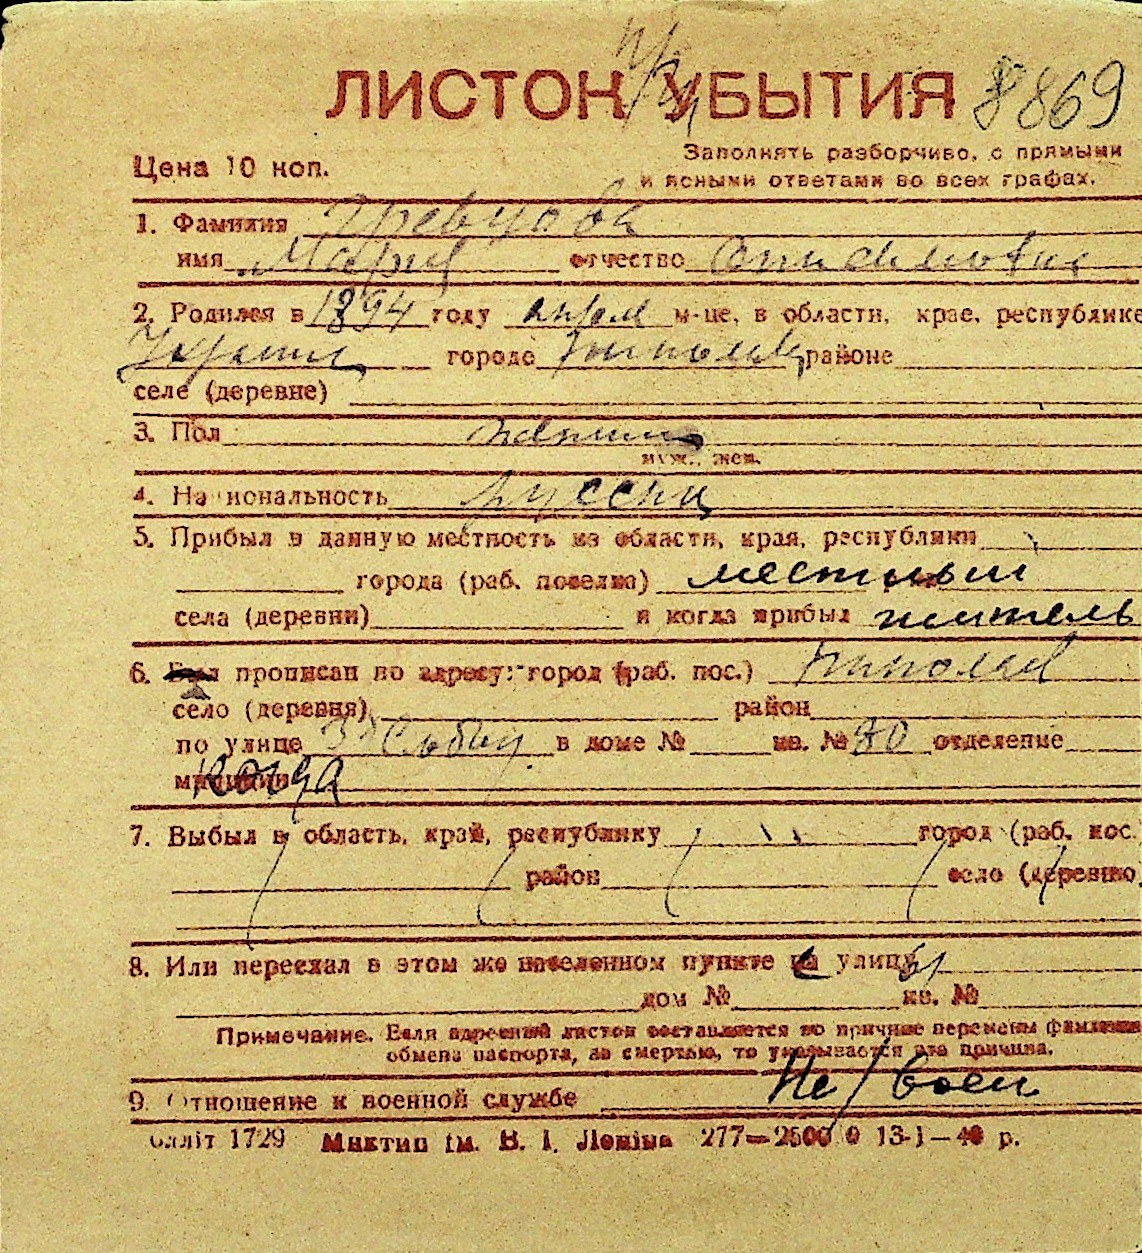 ЛИСТОК УБЫТИЯ 8869
Цена 10 коп.
Заполнять разборчиво, с прямыми
и ясными ответами во всех графах.
1. Фамилия
имя Мария отчество
2. Родился в 1894 году м-це, в области, крае, республике
городе районе
селе (деревне)
3. Пол
муж., жен.
4. Национальность русская
5. Прибыл в данную местность из области, края, республики
города (раб. поселка) местный
села (деревни) и когда прибыл житель
6. прописан по адресу: город (раб. пос.)
село (деревня) район
по улице в доме № кв. № отделение
милиции
7. Выбыл в область, край, республику город (раб. пос.
район село (деревню)
8. Или переехал в этом же населенном пункте на улицу
дом № кв. №
Примечание. Если адресный листок составляется по причине перемены фамилии,
обмена паспорта, за смертью, то указывается эта причина.
9. Отношение к военной службе Не воен
олліт 1729 Миктип ім. В. І. Леніна 277—2500 0 13-I—40 р.